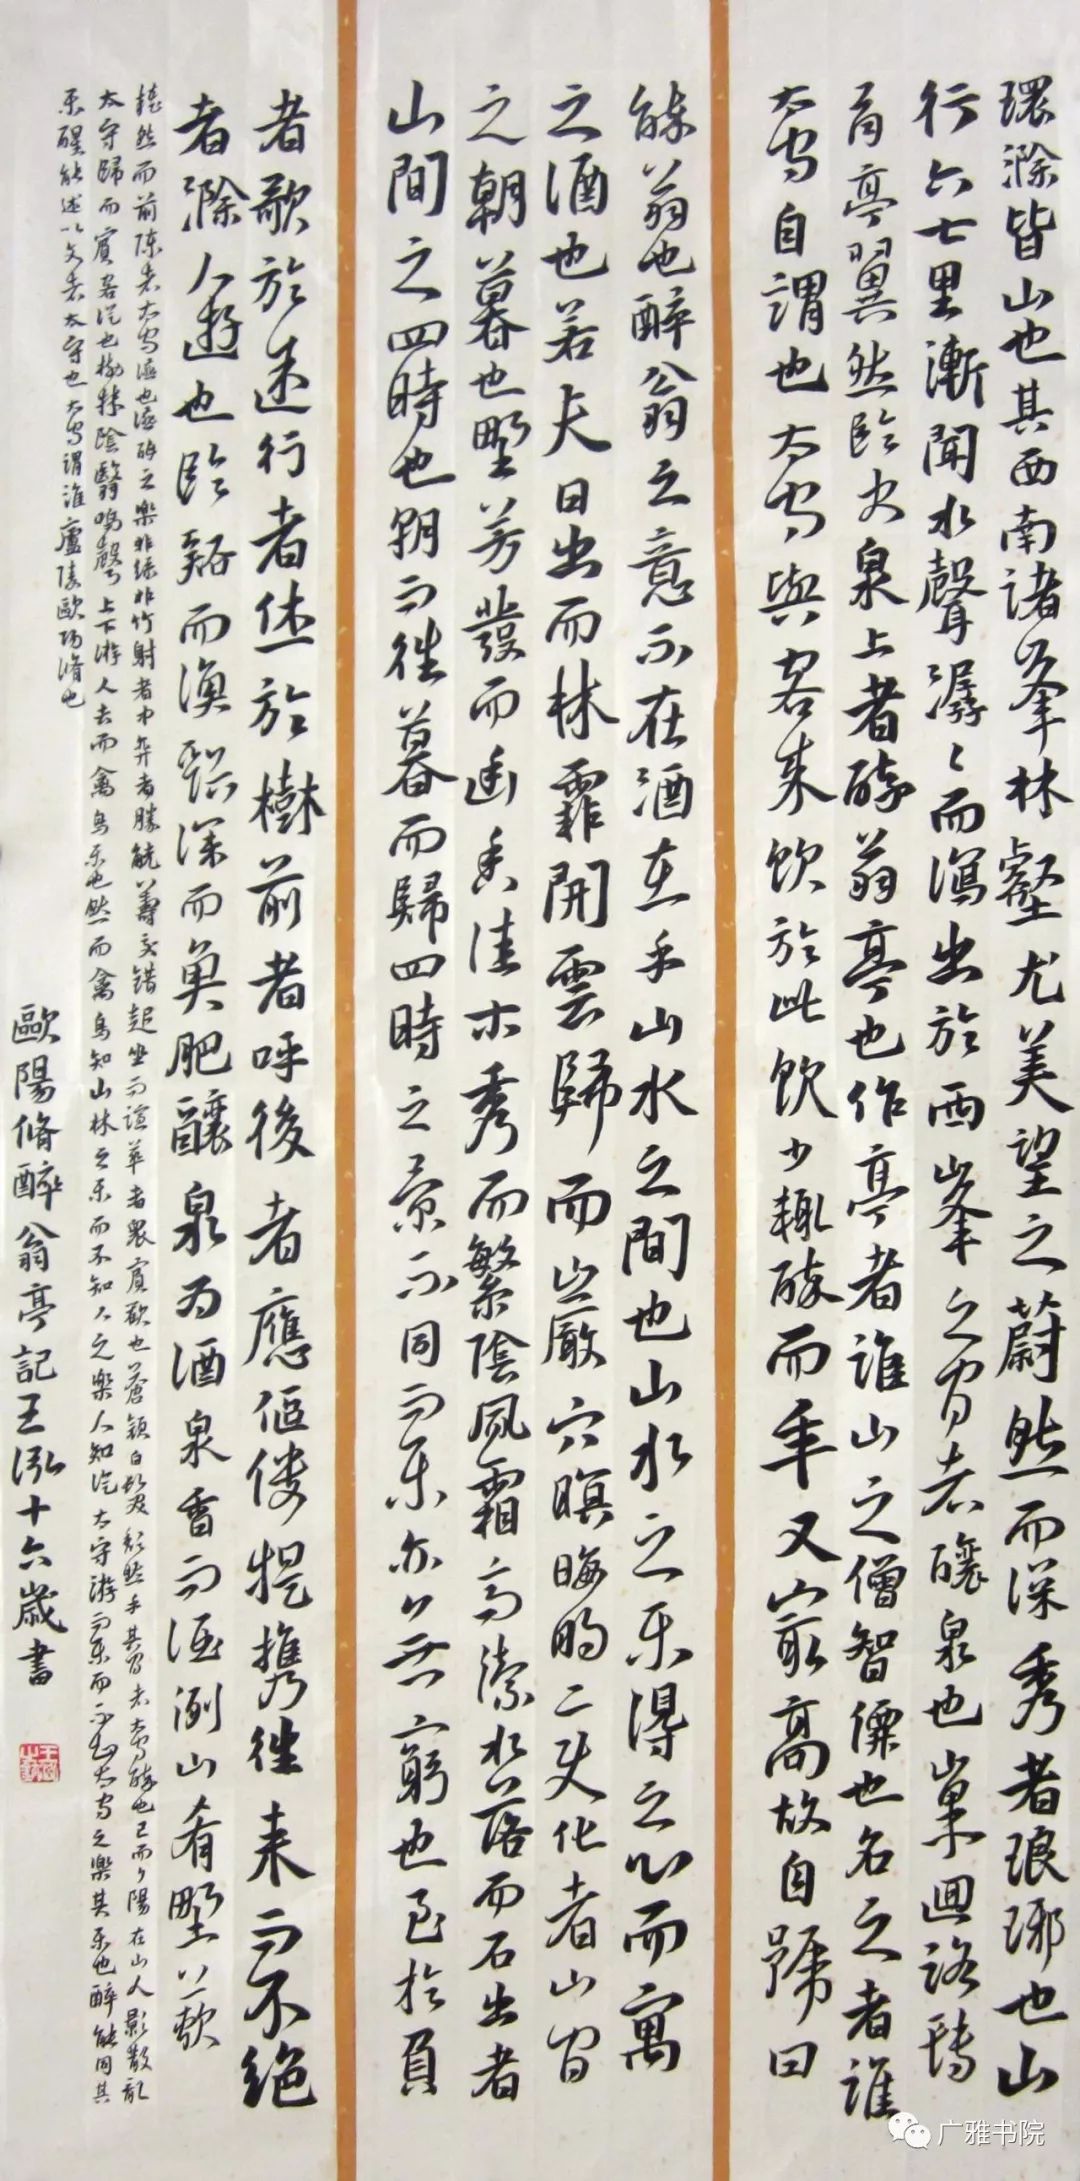 環滁皆山也其西南諸峯林壑尤美望之蔚然而深秀者琅琊也山
行六七里漸聞水聲潺々而瀉出於兩峯之間者釀泉也峯迴路轉
有亭翼然臨於泉上者醉翁亭也作亭者誰山之僧智僊也名之者誰
太守自謂也太守與客來飲於此飲少輒醉而年又最高故自號曰
醉翁也醉翁之意不在酒在乎山水之間也山水之樂得之心而寓
之酒也若夫日出而林霏開雲歸而巖穴暝晦明變化者山間
之朝暮也野芳發而幽香佳木秀而繁陰風霜高潔水落而石出者
山間之四時也朝而往暮而歸四時之景不同而樂亦無窮也至於負
者歌於途行者休於樹前者呼後者應傴僂提攜往來而不絕
者滁人遊也臨谿而漁谿深而魚肥釀泉為酒泉香而酒洌山肴野蔌
雜然而前陳者太守宴也宴酣之樂非絲非竹射者中弈者勝觥籌交錯起坐而諠譁者眾賓歡也蒼顏白髮頹然乎其間者太守醉也已而夕陽在山人影散亂
太守歸而賓客從也樹林陰翳鳴聲上下游人去而禽鳥樂也然而禽鳥知山林之樂而不知人之樂人知從太守游而樂而不知太守之樂其樂也醉能同其
樂醒能述以文者太守也太守謂誰廬陵歐陽脩也
歐陽脩醉翁亭記王泓十六歲書
广雅书院